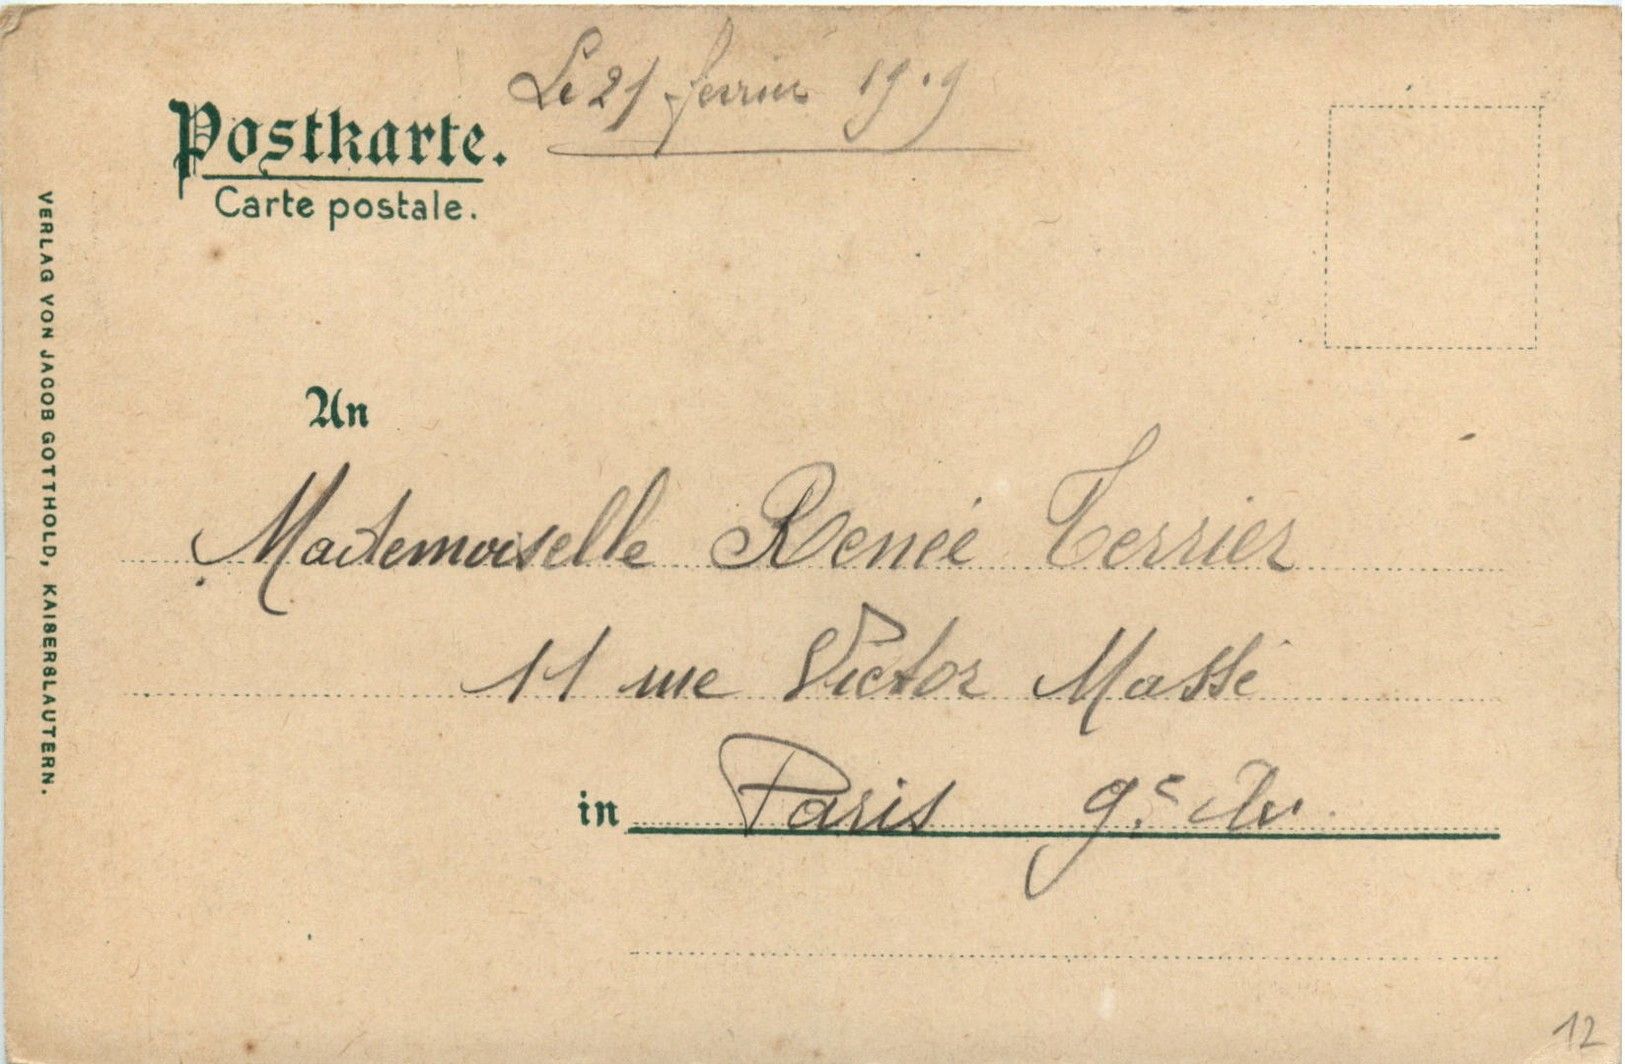 Le 21 fevrier 1919
Postkarte.
Carte postale.
VERLAG VON JACOB GOTTHOLD, KAISERSLAUTERN.
An
Mademoiselle Renée Terrier
11 rue Victor Massé
in Paris 9e Arr.
12